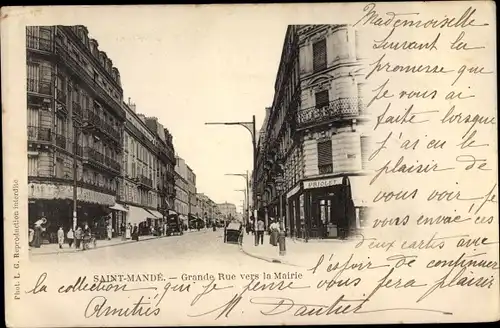 Mademoiselle
Suivant la
promesse que
je vous ai
faite lorsque
j'ai eu le
plaisir de
vous voir, je
vous envoie ces
deux cartes avec
l'espoir de continuer
la collection qui je pense vous fera plaisir
Amitiés M. Dautier
SAINT-MANDÉ. — Grande Rue vers la Mairie
Phot. L. G. Reproduction interdite
BRIOLET